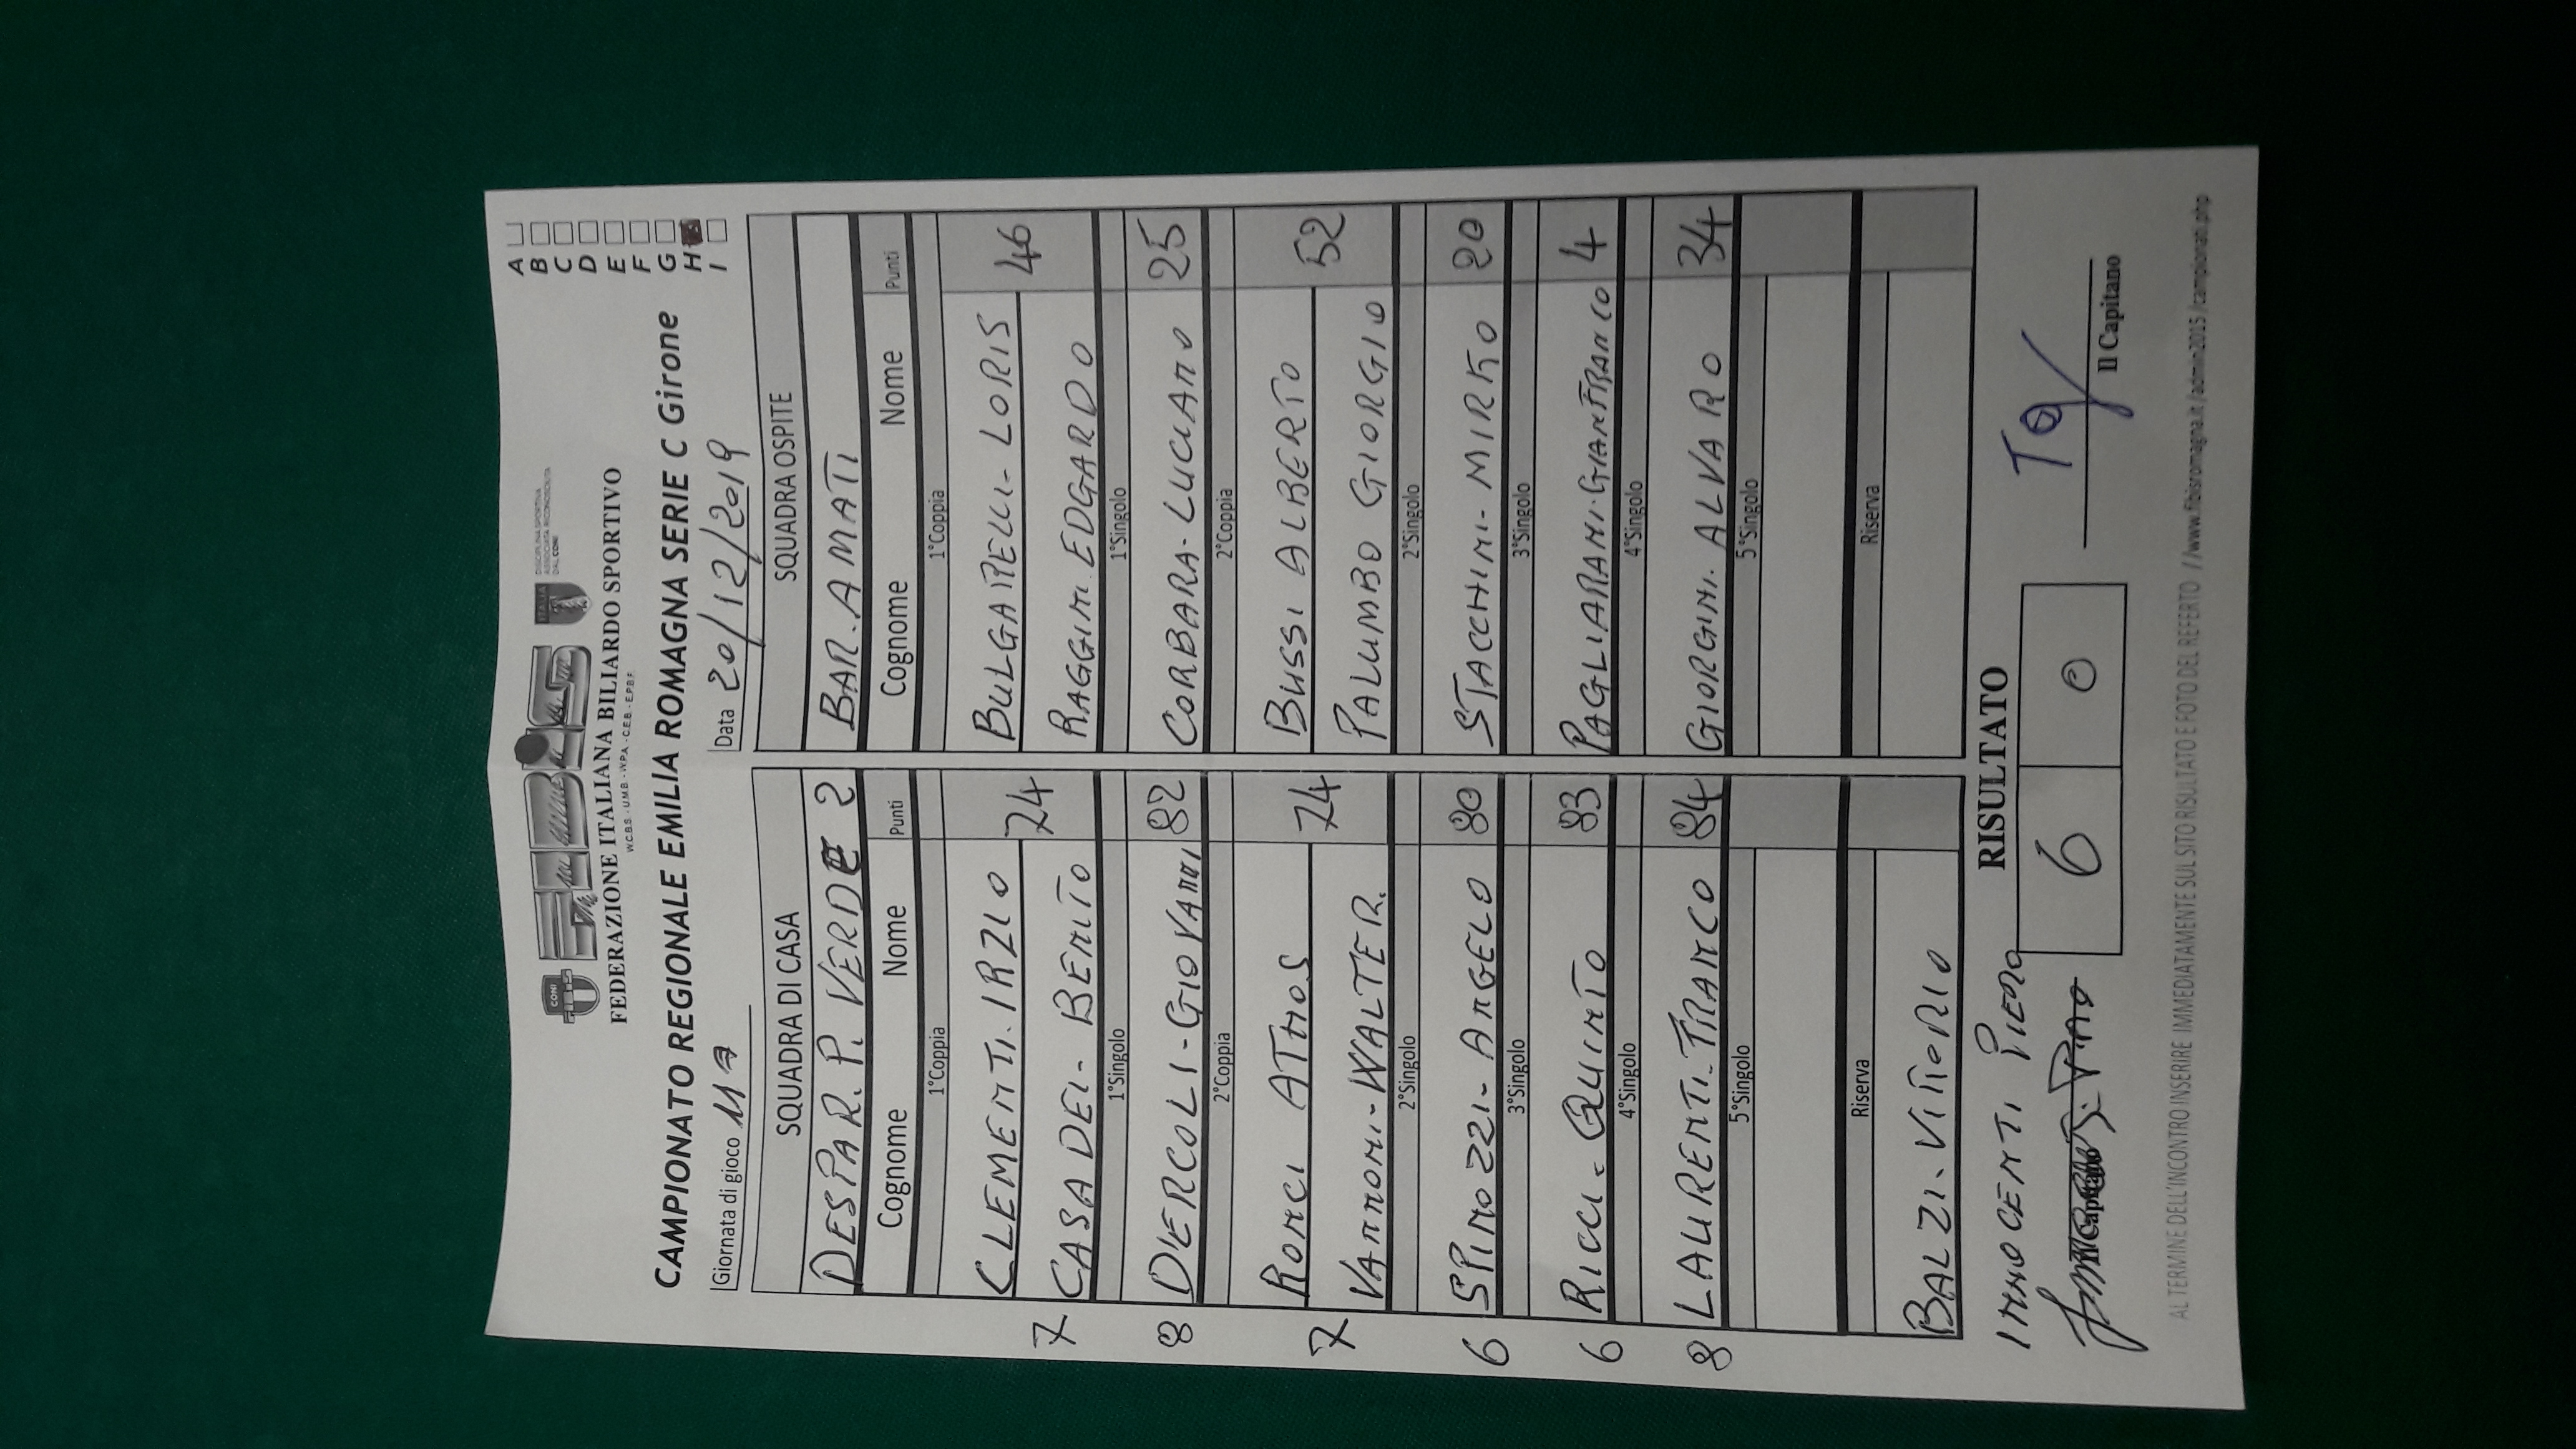 CONI
FIBiS
ITALIA
DISCIPLINA SPORTIVA
ASSOCIATA RICONOSCIUTA
DAL CONI
FEDERAZIONE ITALIANA BILIARDO SPORTIVO
W.C.B.S. - U.M.B. - W.P.A. - C.E.B. - E.P.B.F.
CAMPIONATO REGIONALE EMILIA ROMAGNA SERIE C Girone
A
B
C
D
E
F
G
H
I
Giornata di gioco 11ª Data 20/12/2019
SQUADRA DI CASA SQUADRA OSPITE
DESPAR. P. VERDE 2 BAR. AMATI
Cognome Nome Punti Cognome Nome Punti
1°Coppia 1°Coppia
CLEMENTI. IRZIO BULGARELLI - LORIS
7 CASADEI - BENITO 74 RAGGINI EDGARDO 46
1°Singolo 1°Singolo
8 D'ERCOLI - GIOVANNI 82 CORBARA - LUCIANO 25
2°Coppia 2°Coppia
RONCI ATHOS BUSSI ALBERTO
7 VANNONI - WALTER. 74 PALUMBO GIORGIO 52
2°Singolo 2°Singolo
6 SPINOZZI - ANGELO 80 STACCHINI - MIRKO 20
3°Singolo 3°Singolo
6 RICCI - QUINTO 83 PAGLIARANI - GIANFRANCO 4
4°Singolo 4°Singolo
8 LAURENTI - FRANCO 84 GIORGINI. ALVARO 34
5°Singolo 5°Singolo
Riserva Riserva
BALZI. VITTORIO
RISULTATO
INNOCENTI PIERO
6 0
Il Capitano Il Capitano
AL TERMINE DELL'INCONTRO INSERIRE IMMEDIATAMENTE SUL SITO RISULTATO E FOTO DEL REFERTO //www.fibisromagna.it/admin2015/campionati.php